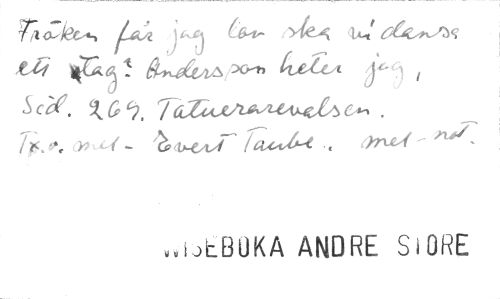 Fröken får jag lov ska vi dansa
ett tag? Andersson heter jag,
Sid. 269. Tatuerarevalsen.
Tx.o. mel- Evert Taube.. mel-not.
WISEBOKA ANDRE STORE